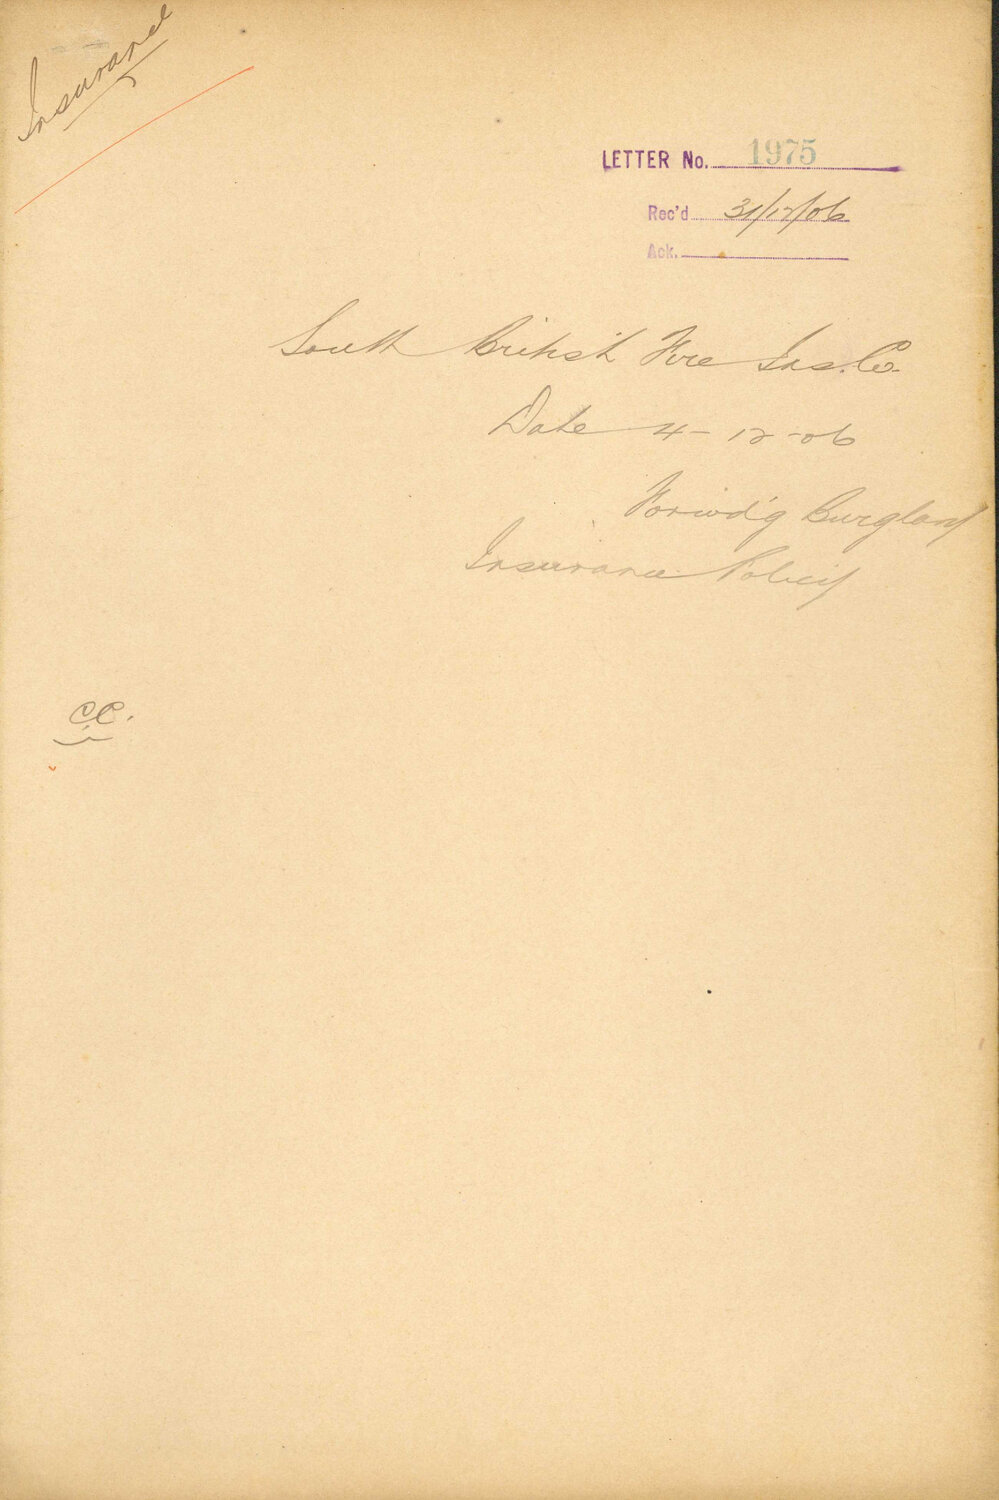 Insurance
LETTER No. 1975
Rec'd 31/12/06
Ack.
South British Fire Ins. Co.
Date 4-12-06
Forwd'g Burglary
Insurance Policy
C.C.